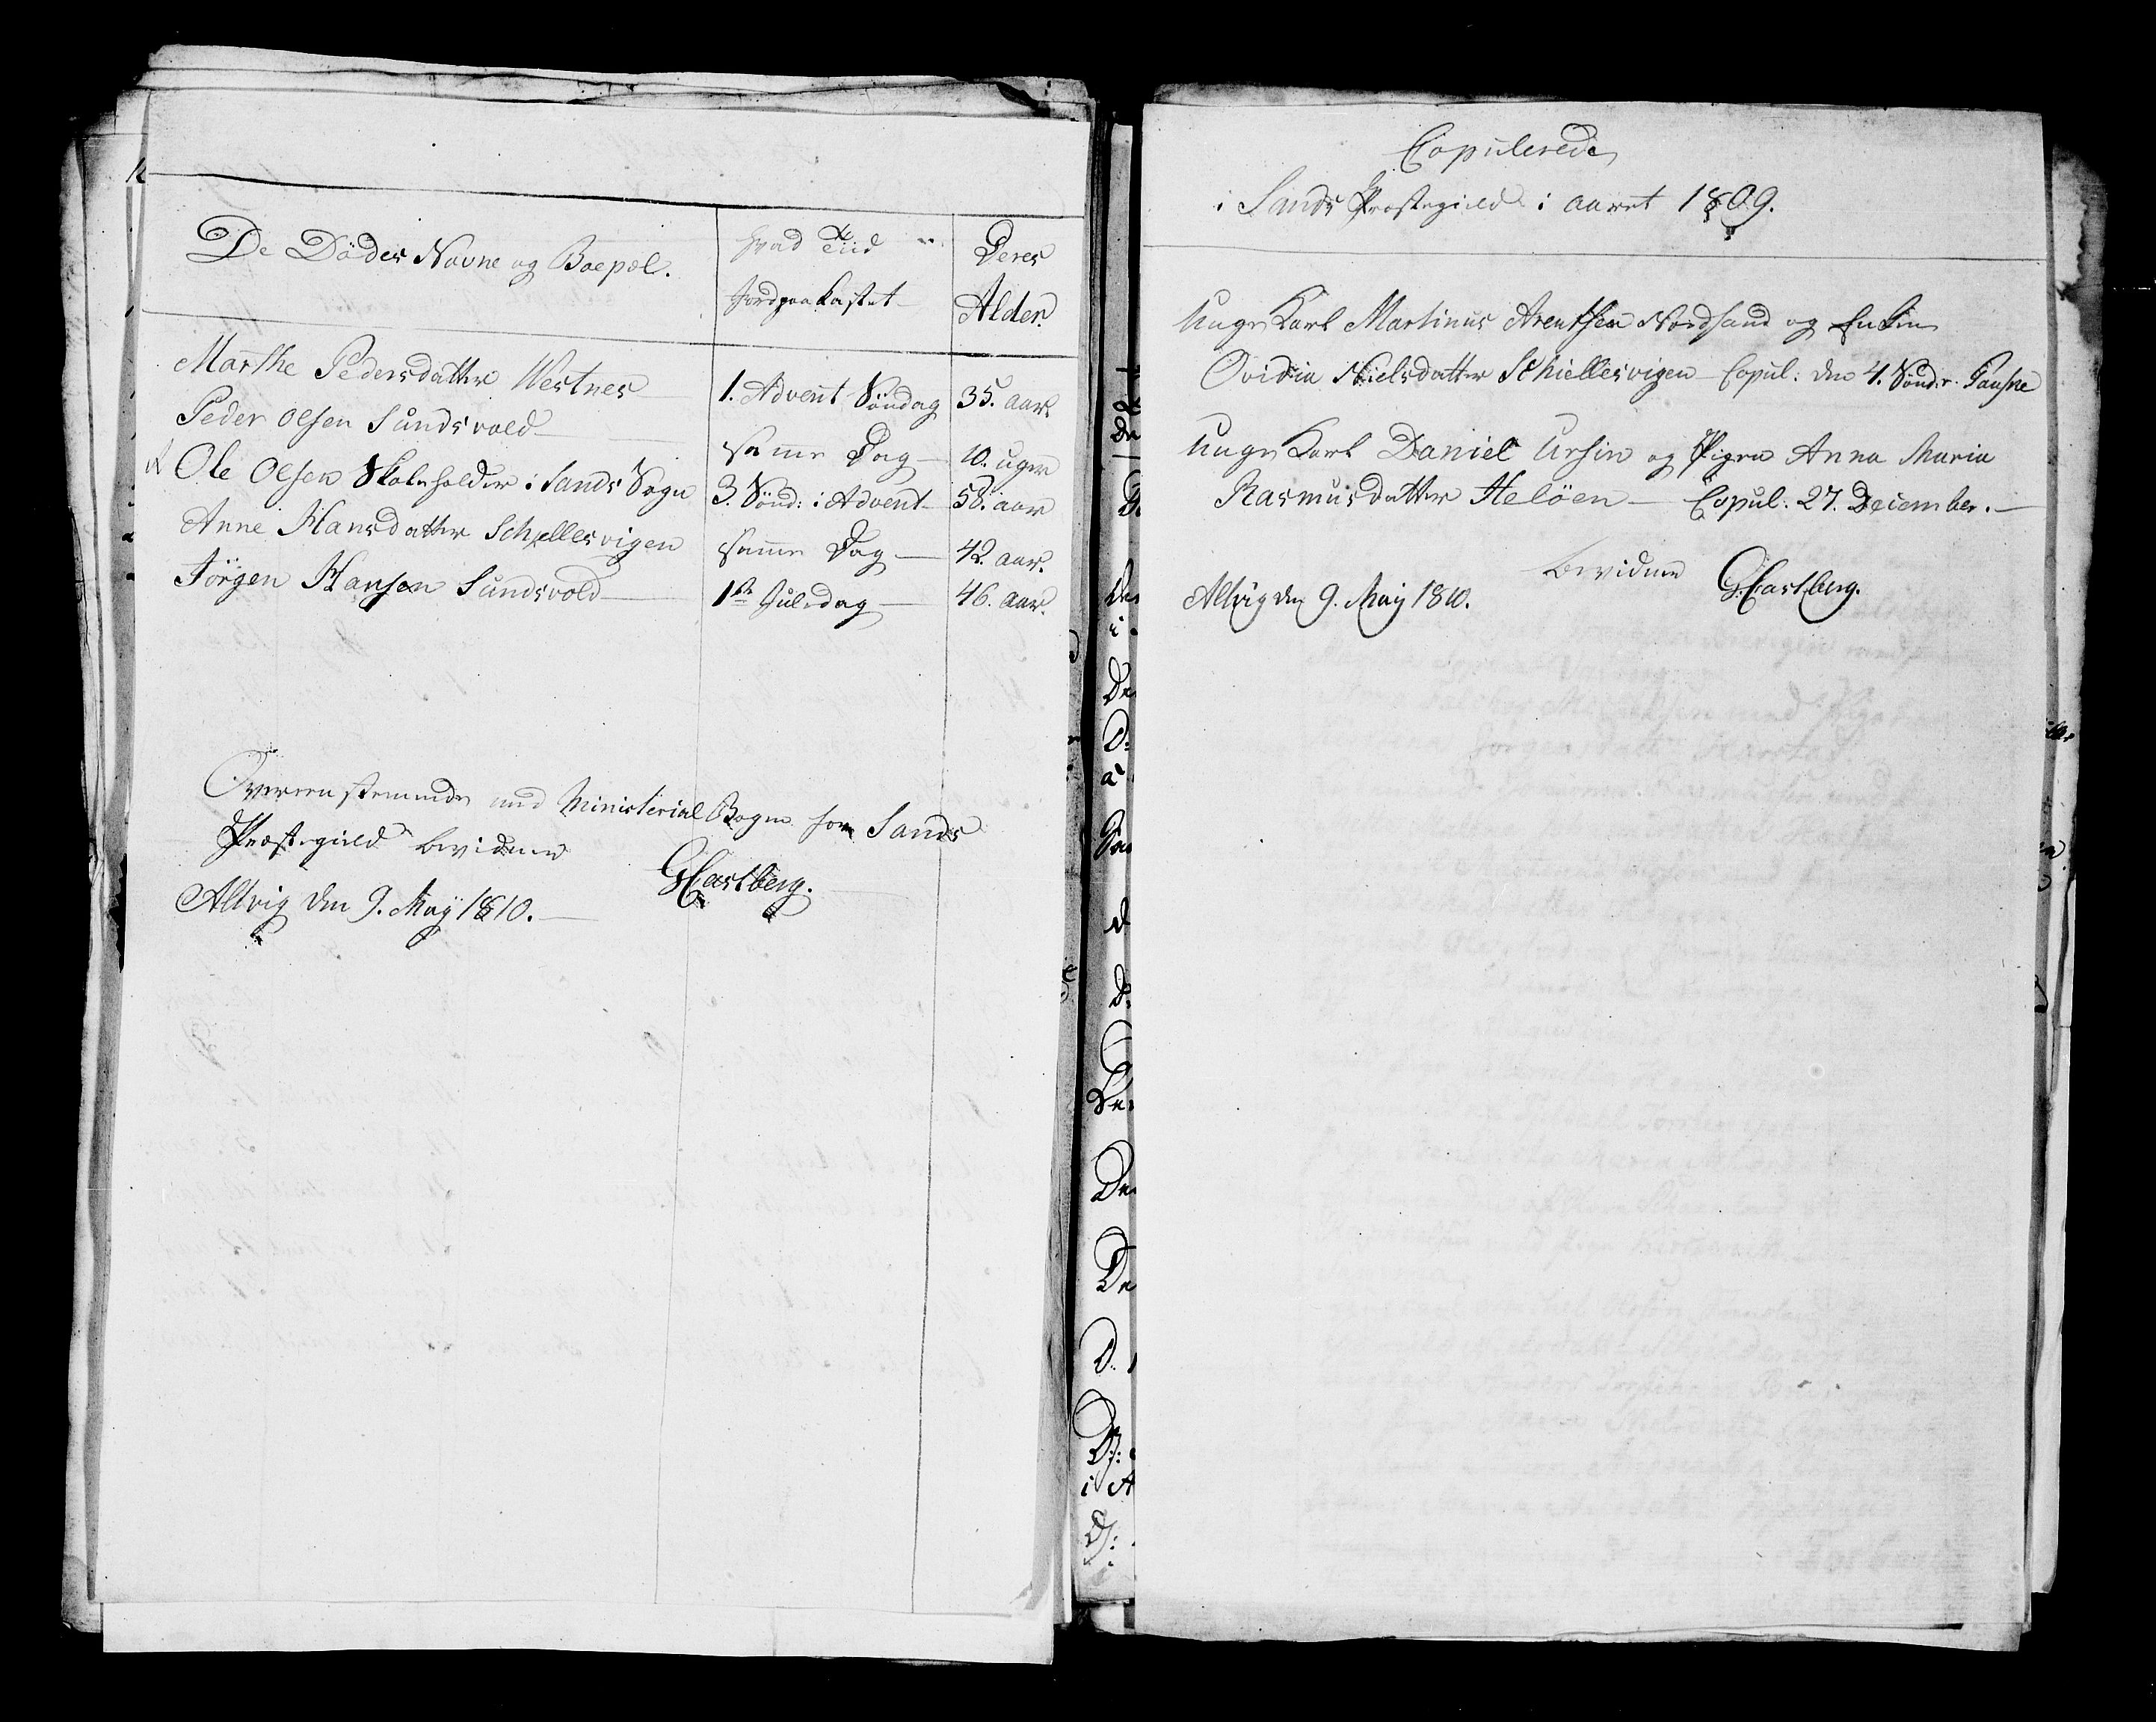 De Dödes Navne og Boepæl.
Hvad Tiid
Jordpaakastet
Deres
Alder.
Marthe Pedersdatter Westnes 1. Advent Söndag 35. aar.
Peder Olsen Sundsvold samme Dag 10. uger
Ole Olsen Skoleholder i Sands Sogn 3. Sönd: i Advent 58. aar
Anne Hansdatter Schjellesvigen samme Dag 42. aar.
Jörgen Hansen Sundsvold 1ste Juledag 46. aar.
Overeenstemmende med Ministerial Bogen for Sands
Præstegield bevidner
GCastberg.
Altvig den 9. May 1810.
Copulerede
i Sands Præstegield i aaret 1809.
Unge Karl Martinus Arentsen Nordsand og Enken
Ovidia Nielsdatter Schiellesvigen Copul: den 4. Sönd: p. Paaske
Unge Karl Daniel Ursin og Pigen Anna Maria
Rasmusdatter Helöen Copul: 27. December.
bevidner GCastberg.
Altvig den 9. May 1810.